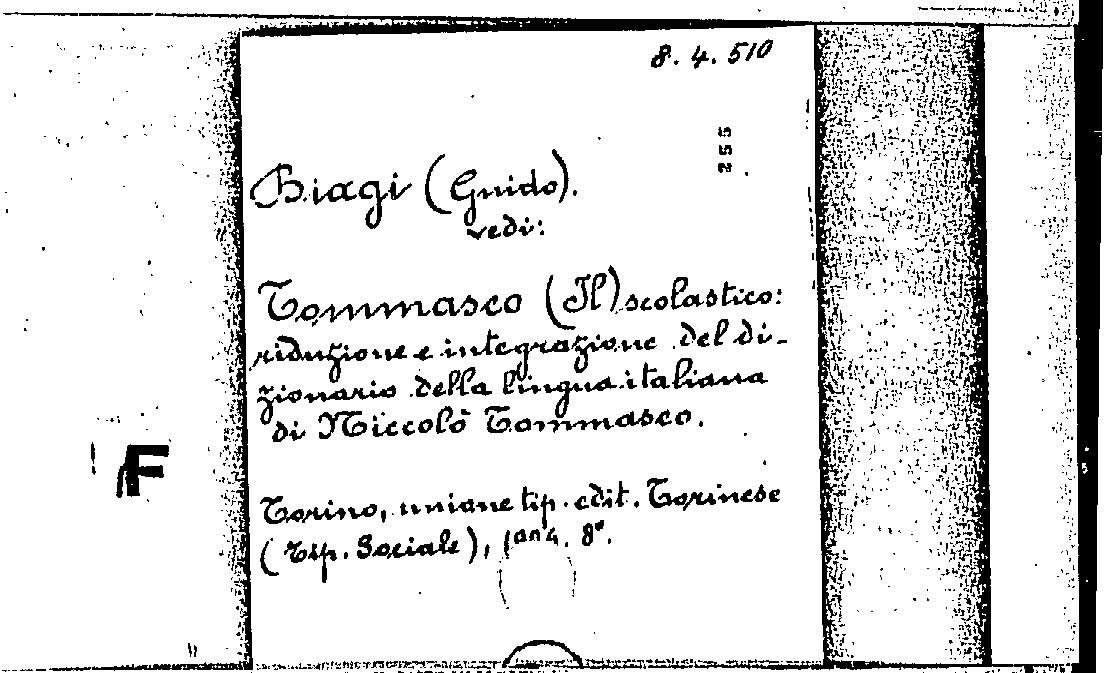 8. 4. 510
255
Biagi (Guido).
vedi:
Tommaseo (Il) scolastico:
riduzione e integrazione del di-
zionario della lingua italiana
di Niccolò Tommaseo.
F
Torino, unione tip. edit. Torinese
(Tip. Sociale), 8°.